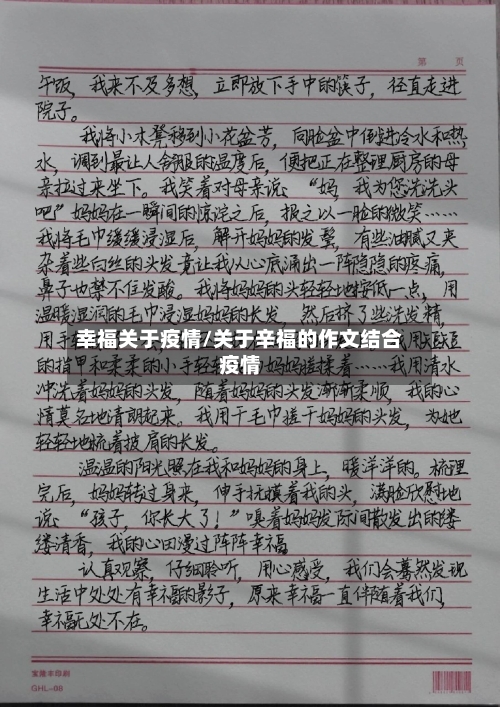 第 页
午饭，我来不及多想，立即放下手中的筷子，径直走进
院子。
我将小木凳移到小花盆旁，向脸盆中倒进冷水和热
水，调到最让人舒服的温度后，便把正在整理厨房的母
亲拉过来坐下。我笑着对母亲说：“妈，我为您洗洗头
吧！”妈妈在一瞬间的惊诧之后，报之以一脸的微笑……
我将毛巾缓缓浸湿后，解开妈妈的发髻，有些油腻又夹
杂着些白丝的头发竟让我从心底涌出一阵隐隐的疼痛，
鼻子也禁不住发酸。我将妈妈的头轻轻地按低一点，用
温暖湿润的毛巾浸湿妈妈的长发，然后挤了些洗发精，
用手
幸福关于疫情/关于辛福的作文结合
疫情
用短短
的指甲和柔柔的小手轻轻 妈妈搓揉着……我用清水
冲洗着妈妈的头发，随着妈妈的头发渐渐柔顺，我的心
情莫名地清朗起来。我用干毛巾搓干妈妈的头发，为她
轻轻地梳着披肩的长发。
温温的阳光照在我和妈妈的身上，暖洋洋的。梳理
完后，妈妈转过身来，伸手抚摸着我的头，满脸欣慰地
说：“孩子，你长大了！”嗅着妈妈发际间散发出的缕
缕清香，我的心田漫过阵阵幸福。
认真观察，仔细聆听，用心感受，我们会蓦然发现
生活中处处有幸福的影子，原来幸福一直伴随着我们，
幸福无处不在。
宜隆丰印刷
GHL-08